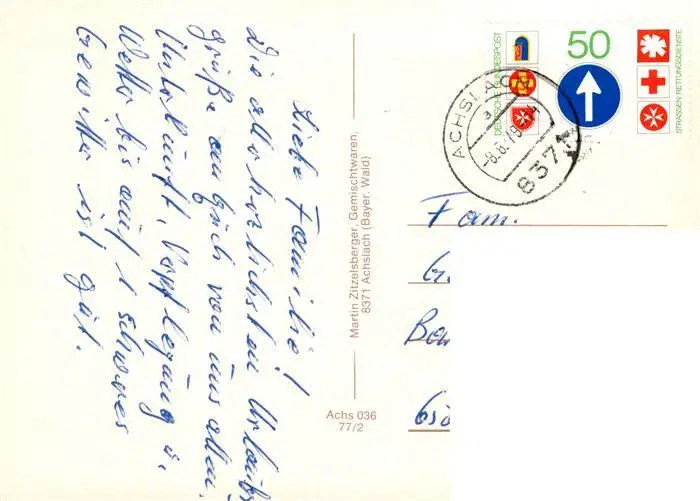 Liebe Familie!
Die allerherzlichsten Urlaubs
grüße an Euch von uns allen.
Unterkunft, Verpflegung u.
Wetter bis auf 1 schweres
Gewitter ist gut.
Martin Zitzelsberger, Gemischtwaren,
8371 Achslach (Bayer. Wald)
Achs 036
77/2
DEUTSCHE BUNDESPOST
50
STRASSEN-RETTUNGSDIENSTE
ACHSLACH
a
-8.6.79
8371
Fam.